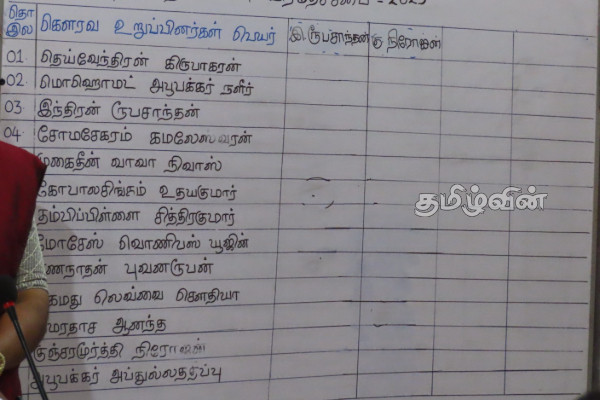 - 2025
தொ இல கௌரவ உறுப்பினர்கள் பெயர் இ.ரூபசாந்தன் கு.நிரோஷன்
01. தெய்வேந்திரன் கிருபாகரன்
02. மொஹொமட் அபூபக்கர் நளீர்
03. இந்திரன் ரூபசாந்தன்
04. சோமசேகரம் கமலேஸ்வரன்
முகைதீன் வாவா நிவாஸ்
கோபாலசிங்கம் உதயகுமார்
தமிழ்வின்
தம்பிப்பிள்ளை சித்திரகுமார்
மோசேஸ் வொணிபஸ் யூஜின்
ணநாதன் புவனரூபன்
கமது லெவ்வை கௌதியா
மரதாச ஆனந்த
குஞ்சரமூர்த்தி நிரோஷன்
அபூபக்கர் அப்துல்லதப்பு